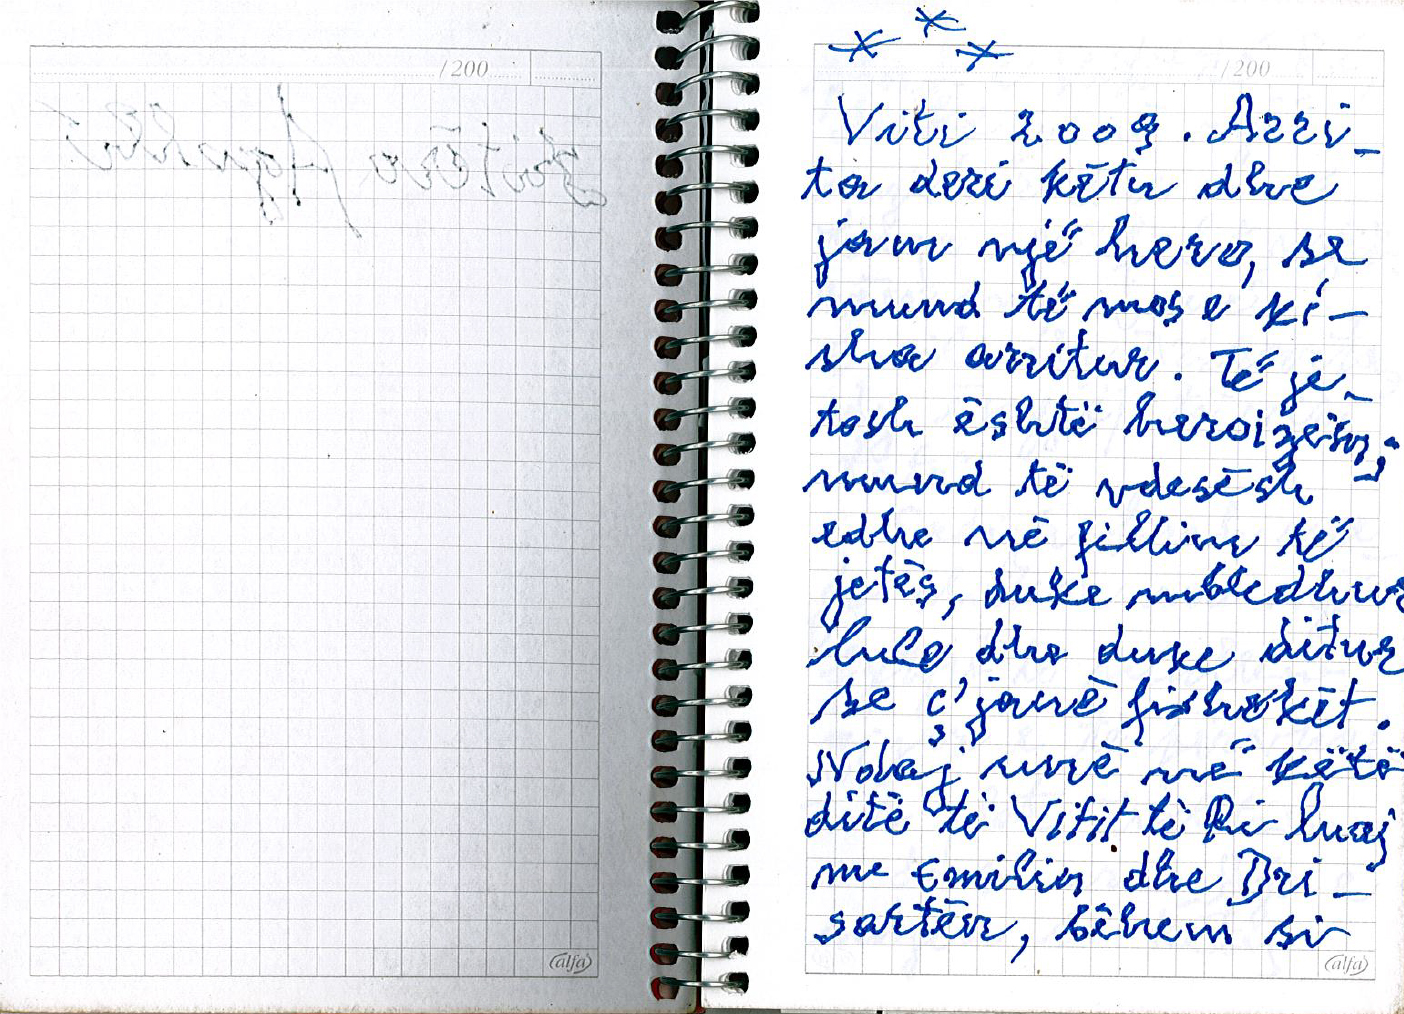 /200
* * *
/200
Viti 2009. Arri_
ta deri këtu dhe
jam një hero, se
mund të mos e ki–
sha arritur. Të je_
tosh është heroizëm;
mund të vdesësh
edhe në fillim të
jetës, duke mbledhur
lule dhe duke ditur
se ç'janë fishekët.
Ndaj unë në këto
ditë të Vitit të Ri luaj
me Emilin dhe Bri_
sartën, bëhem si
alfa
alfa